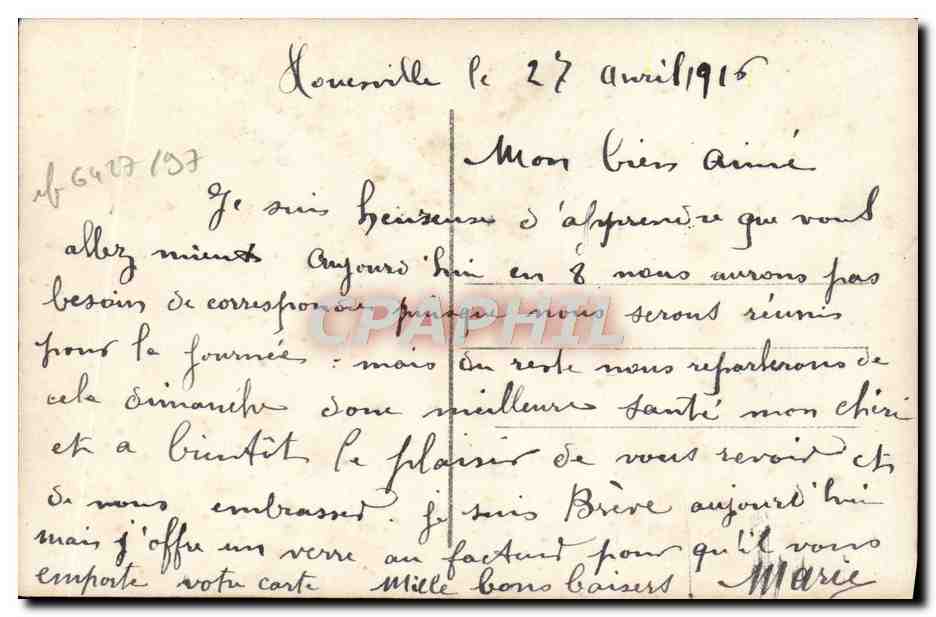 Houesville le 27 avril 1916
Mon bien aimé
ref 6427/97
Je suis heureuse d'apprendre que vous
allez mieux Aujourd'hui en 8 nous aurons pas
besoin de correspondre puisque nous seront réunis
CPAPHIL
pour la journée : mais du reste nous reparlerons de
cela dimanche donc meilleure santé mon chéri
et a bientôt le plaisir de vous revoir et
de nous embrasser. je suis Brève aujourd'hui
mais j'offre un verre au facteur pour qu'il vous
emporte votre carte Mille bons baisers Marie